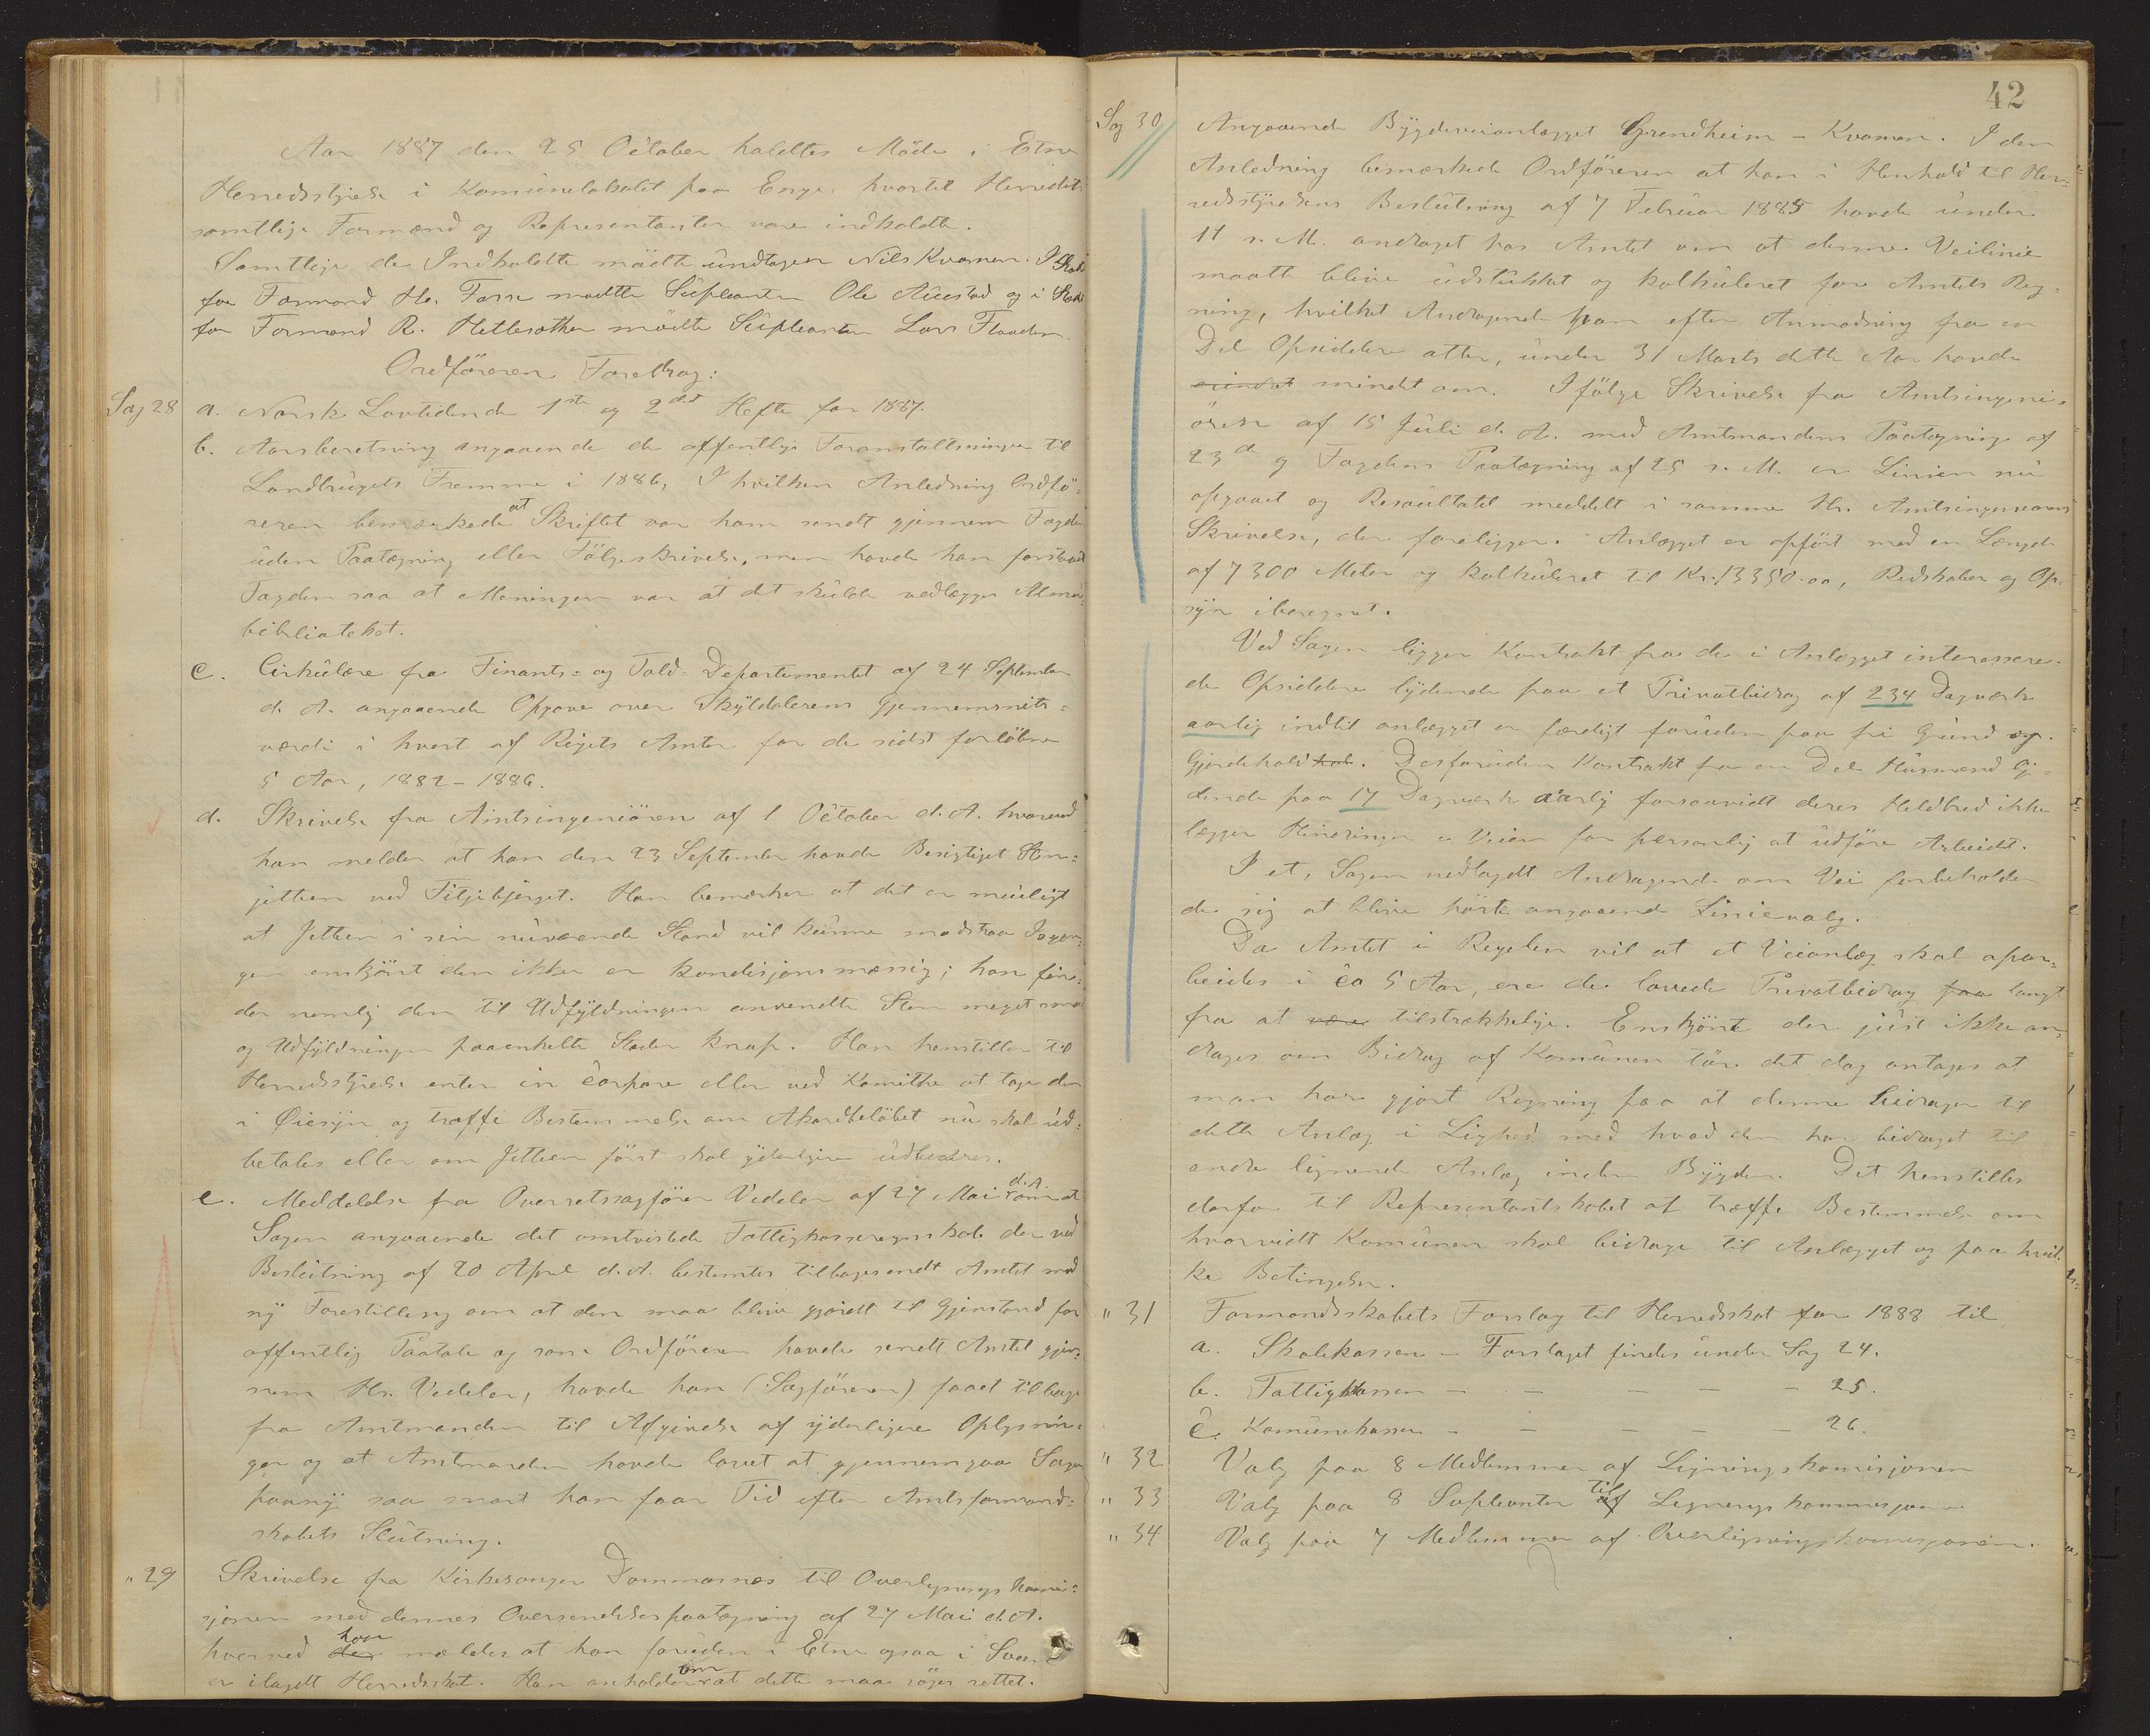 Aar 1887 den 25 October holdtes Möde i Etne
Herredsstyrelse i Komünelokalet paa Enge, hvortil Herredets
samtlige Formænd og Representanter vare indkaldte.
Samtlige de Indkaldte mödte ündtagen Nils Kvamen. I Sted
for Formand H. Tesse mödte Süpleanten Ole Austad og i Sted
for Formand R. Hetlesæther mödte Süpleanten Lars Flaaden.
Ordföreren Foredrog:
Sag 28 a. Norsk Lovtidende 1ste og 2det Hefte for 1887.
b. Aarsberetning angaaende de offentlige Foranstaltninger til
Landbrügets Fremme i 1886, I hvilken Anledning Ordfö-
reren bemærkede at Skriftet var ham sendt gjennem Fogden
üden Paategning eller Fölgeskrivelse, men havde han forstaaet
Fogden saa at Meningen var at det skülde vedlægges Almü-
bibliotheket.
c. Cirkülære fra Finants- og Told-Departementet af 24 September
d. A. angaaende Opgave over Skÿlddalerens Gjennemsnits-
værdi i hvert af Rigets Amter for de sidst forlöbne
5 Aar, 1882-1886.
d. Skrivelse fra Amtsingeniören af 1 October d. A. hvorved
han melder at han den 23 September havde Besigtiget Sten-
jetteen ved Filjebjerget. Han bemærker at det er müligt
at Jetteen i sin nüværende Stand vil künne modstaa
enskjönt den ikke er kondisjonsmæssig; han fin-
der nemlig den til Udfÿldningen anvendte Sten meget smaa
og Udfÿldningen paa enkelte Steder knap. Han henstiller til
Herredsstÿrelse enten in corpore eller ved Komitte at tage den
i Øiesÿn og træffe Bestemmelse om Akordbelöbet nü skal üd-
betales eller om Jetteen först skal ÿderligere üdbedres.
e. Meddelelse fra Overretssagförer Vedeler af 27 Mai d. A. om at
Sagen angaaende det omtvistede Fattigkasseregnskab der ved
Beslütning af 20 April d. A. bestemtes tilbagesendt Amtet med
nÿ Forestilling om at den maa blive gjordt til Gjenstand for
offentlig Paatale og som Ordföreren havde sendt Amtet gjen-
nem Hr. Vedeler, havde han (Sagföreren) faaet tilbage
fra Amtmanden til Afgivelse af ÿderligere Oplÿsnin-
ger og at Amtmanden havde lovet at gjennemgaa Sagen
paanÿ saa snart han faar Tid efter Amtsformand-
skabets Slütning.
" 29 Skrivelse fra Kirkesanger Dommersnes til Overligningskomi-
sjonen med dennes Oversendelsespaategning af 27 Mai d. A.
hvorved der han melder at han forüden i Etne ogsaa i
er ilagdt Herredsskat. Han anholder om at dette maa söges rettet.
42
Sag 30 Angaaende Bÿgdeveianlægget Grendheim - Kvamen. I den
Anledning bemærkede Ordföreren at han i Henhold til Her-
redsstÿrelsens Beslütning af 7 Februar 1885 havde ünder
11 s. M. andraget hos Amtet om at denne Veilinie
maatte blive üdstükket og kalküleret for Amtets Reg-
ning, hvilket Andragende han efter Anmodning fra en
Del Opsiddere atter, ünder 31 Marts dette Aar havde
erindret mindet om. I fölge Skrivelse fra Amtsingeni-
ören af 15 Jüli d. A. med Amtmandens Paategning af
23de og Fogdens Paategning af 25 s. M. er Linien nü
opgaaet og Resültatet meddelt i samme Hr. Amtsingeniörens
Skrivelse, der foreligger. Anlægget er opfört med en Længde
af 7300 Meter og kalküleret til Kr. 13350.00, Redskaber og Op-
sÿn iberegnet.
Ved Sagen ligger Kontrakt fra de i Anlægget interessere-
de Opsiddere lÿdende paa et Privatbidrag af 234 Dagværk
aarlig indtil anlægget er færdigt forüden paa fri Gründ og
Gjerdehold. Desforüden Kontrakt fra en Del Hüsmænd lÿ-
dende paa 17 Dagværk aarlig forsaavidt deres Heldbred ikke
lægger Hindringer i Veien for personlig at üdföre Arbeidet.
I et, Sagen vedlagdt Andragende om Vei forbeholder
de sig at blive hörte angaaende Linievalg.
Da Amtet i Regelen vil at et Veianlæg skal opar-
beides i ca 5 Aar, ere de lovede Privatbidrag paa langt
fra at være tilstrækkelige. Enskjönt der jüst ikke an-
drages om Bidrag af Komünen tör det dog antages at
man har gjort Regning paa at denne bidrager til
dette Anlæg i Lighed med hvad den har bidraget til
andre lignende Anlæg inden Bÿgden. Det henstilles
derfor til Representantskabet at træffe Bestemmelse om
hvorvidt Komünen skal bidrage til Anlægget og paa hvil-
ke Betingelser.
" 31 Formandsskabets Forslag til Herredsskat for 1888 til
a. Skolekassen - Forslaget findes ünder Sag 24.
b. Fattigkassen - - - - - 25.
c. Komünekassen - - - - - 26.
" 32 Valg paa 8 Medlemmer af Ligningskomisjonen
" 33 Valg paa 8 Supleanter af til Ligningskommisjonen
" 34 Valg paa 7 Medlemmer af Overligningskomisjonen.